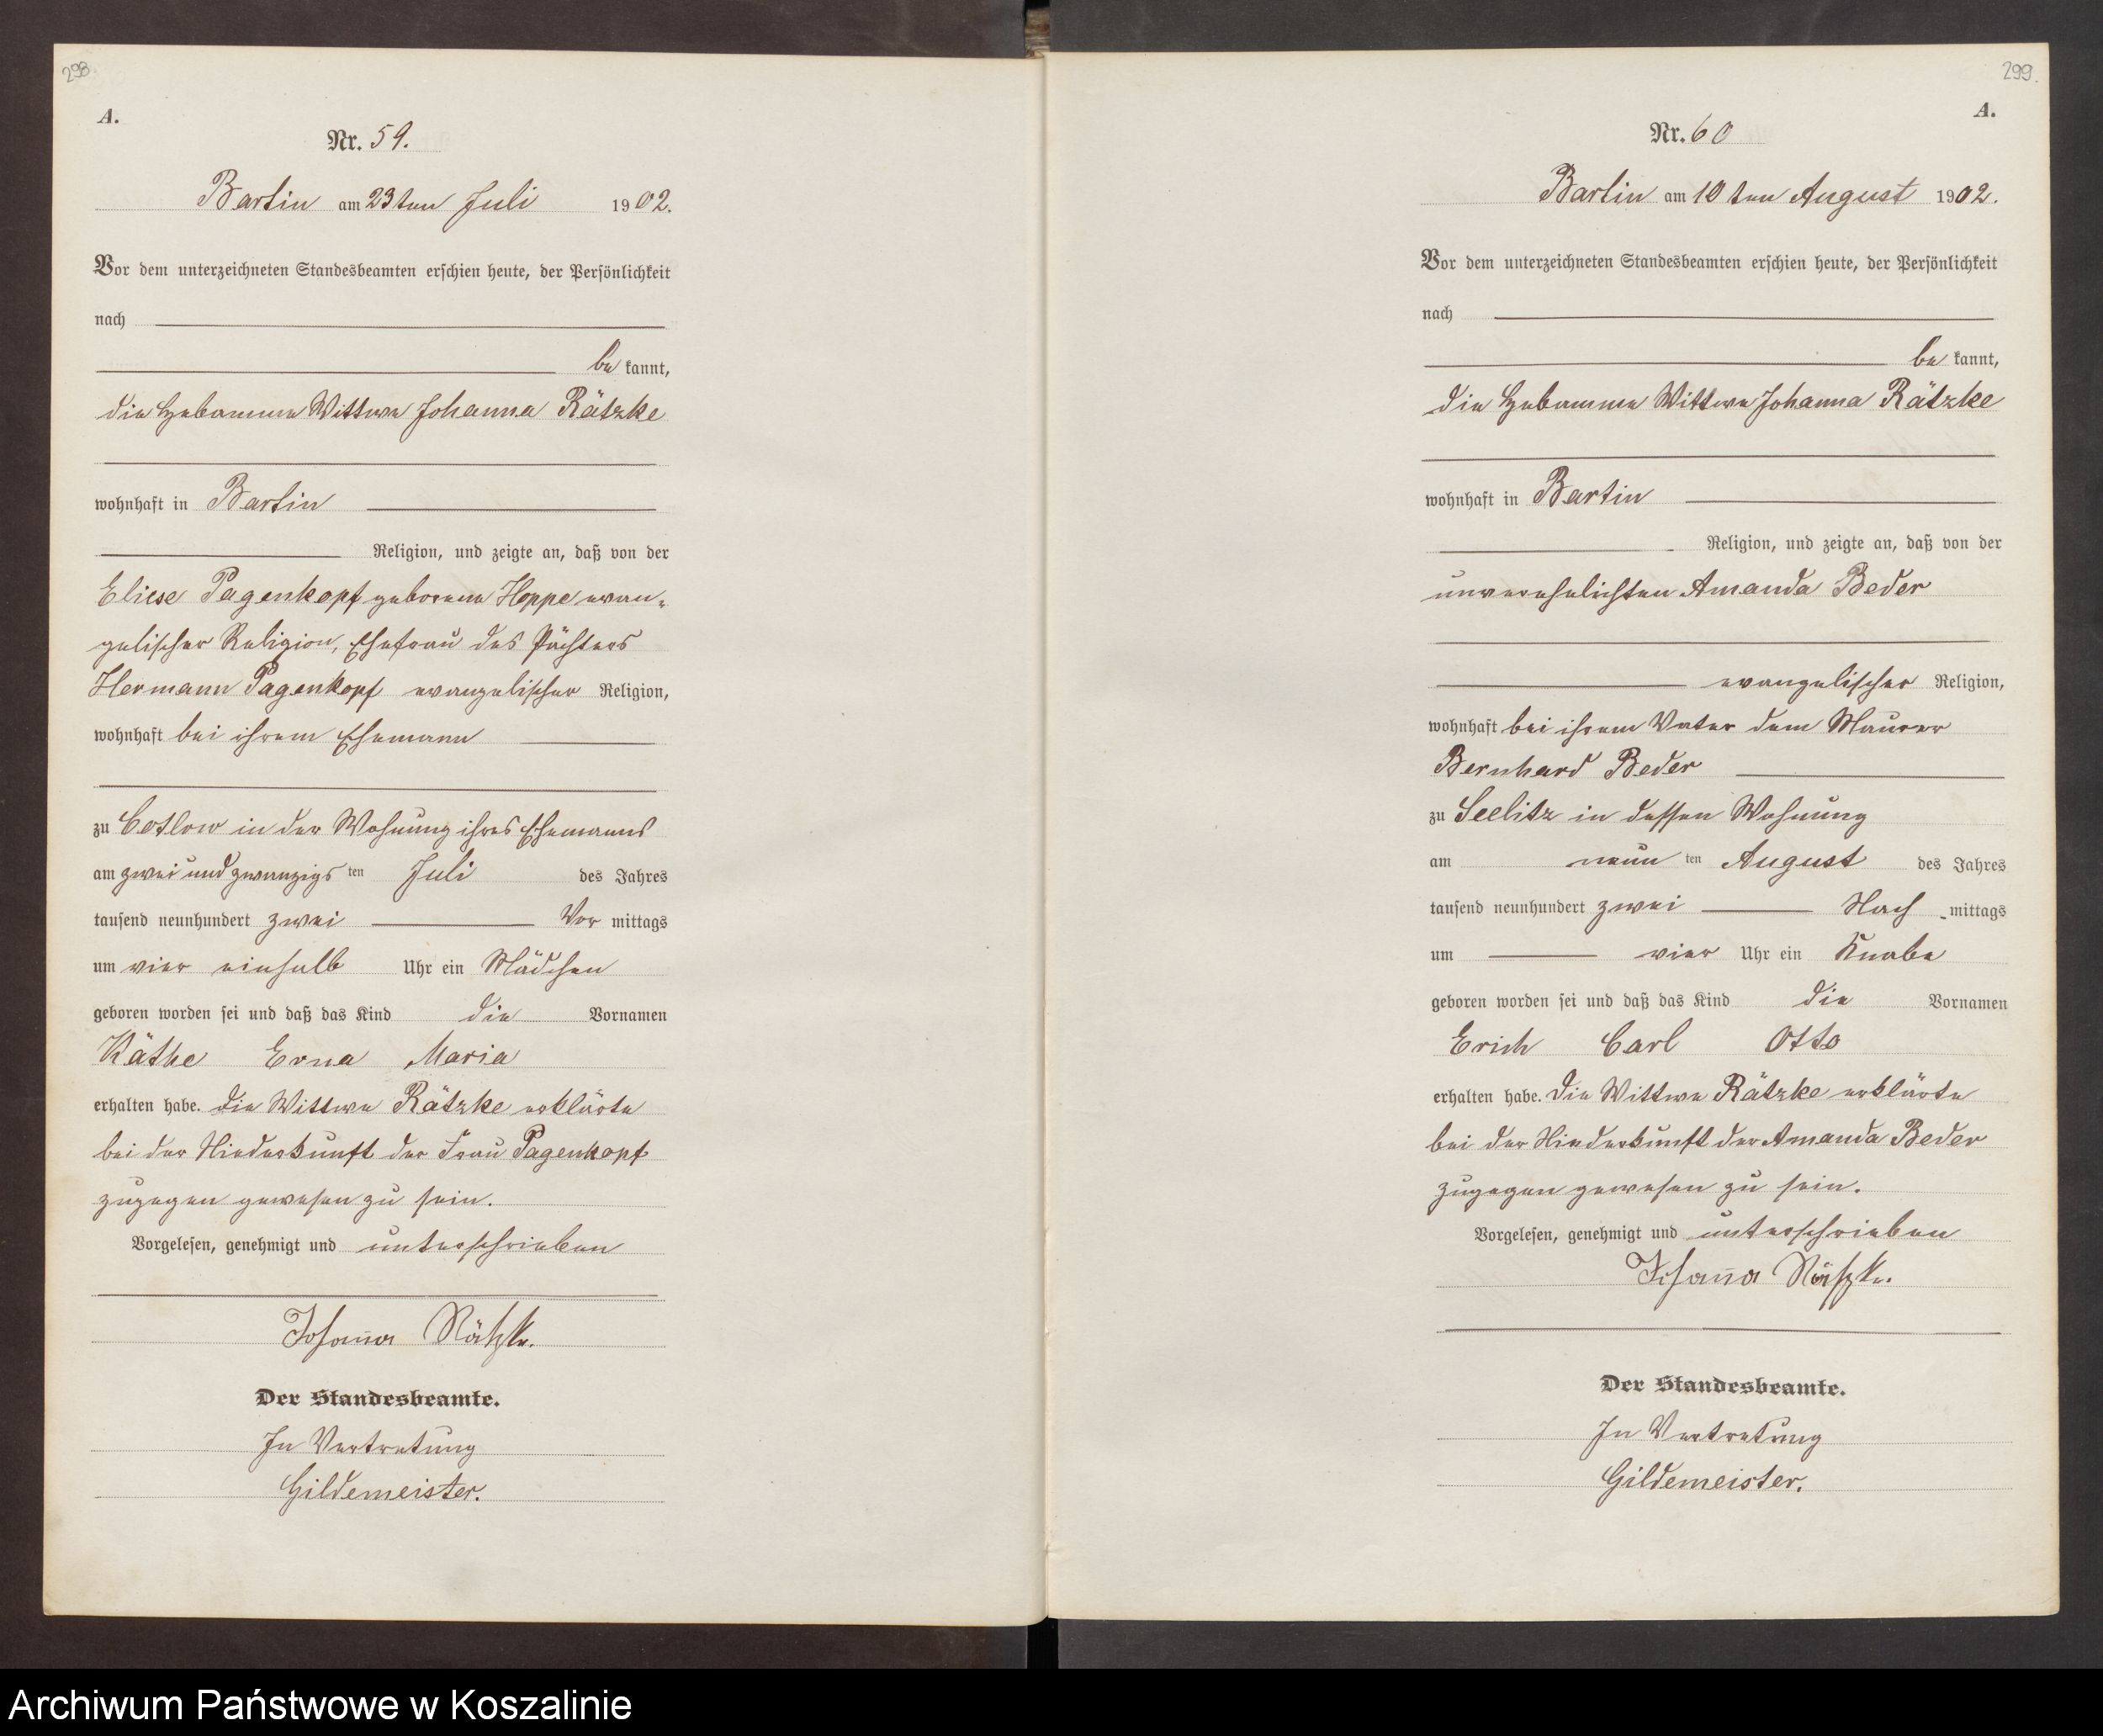 298.
A.
Nr. 59.
Bartin am 23ten Juli 1902.
Vor dem unterzeichneten Standesbeamten erschien heute, der Persönlichkeit
nach
be kannt,
die Hebamme Wittwe Johanna Rätzke
wohnhaft in Bartin
Religion, und zeigte an, daß von der
Eliese Pagenkopf geborene Hoppe evan-
gelischer Religion, Ehefrau des Pächters
Hermann Pagenkopf evangelischer Religion,
wohnhaft bei ihrem Ehemann
zu Cotlow in der Wohnung ihres Ehemanns
am zwei und zwanzigs ten Juli des Jahres
tausend neunhundert zwei Vor mittags
um vier einhalb Uhr ein Mädchen
geboren worden sei und daß das Kind die Vornamen
Käthe Erna Maria
erhalten habe. Die Wittwe Rätzke erklärte
bei der Niederkunft der Frau Pagenkopf
zugegen gewesen zu sein.
Vorgelesen, genehmigt und unterschrieben
Johanna Rätzke.
Der Standesbeamte.
In Vertretung
Gildemeister.
299.
A.
Nr. 60
Bartin am 10ten August 1902.
Vor dem unterzeichneten Standesbeamten erschien heute, der Persönlichkeit
nach
be kannt,
die Hebamme Wittwe Johanna Rätzke
wohnhaft in Bartin
Religion, und zeigte an, daß von der
unverehelichten Amanda Beder
evangelischer Religion,
wohnhaft bei ihrem Vater dem Maurer
Bernhard Beder
zu Seelitz in dessen Wohnung
am neun ten August des Jahres
tausend neunhundert zwei Nach mittags
um vier Uhr ein Knabe
geboren worden sei und daß das Kind die Vornamen
Erich Carl Otto
erhalten habe. Die Wittwe Rätzke erklärte
bei der Niederkunft der Amanda Beder
zugegen gewesen zu sein.
Vorgelesen, genehmigt und unterschrieben
Johanna Rätzke.
Der Standesbeamte.
In Vertretung
Gildemeister.
Archiwum Państwowe w Koszalinie